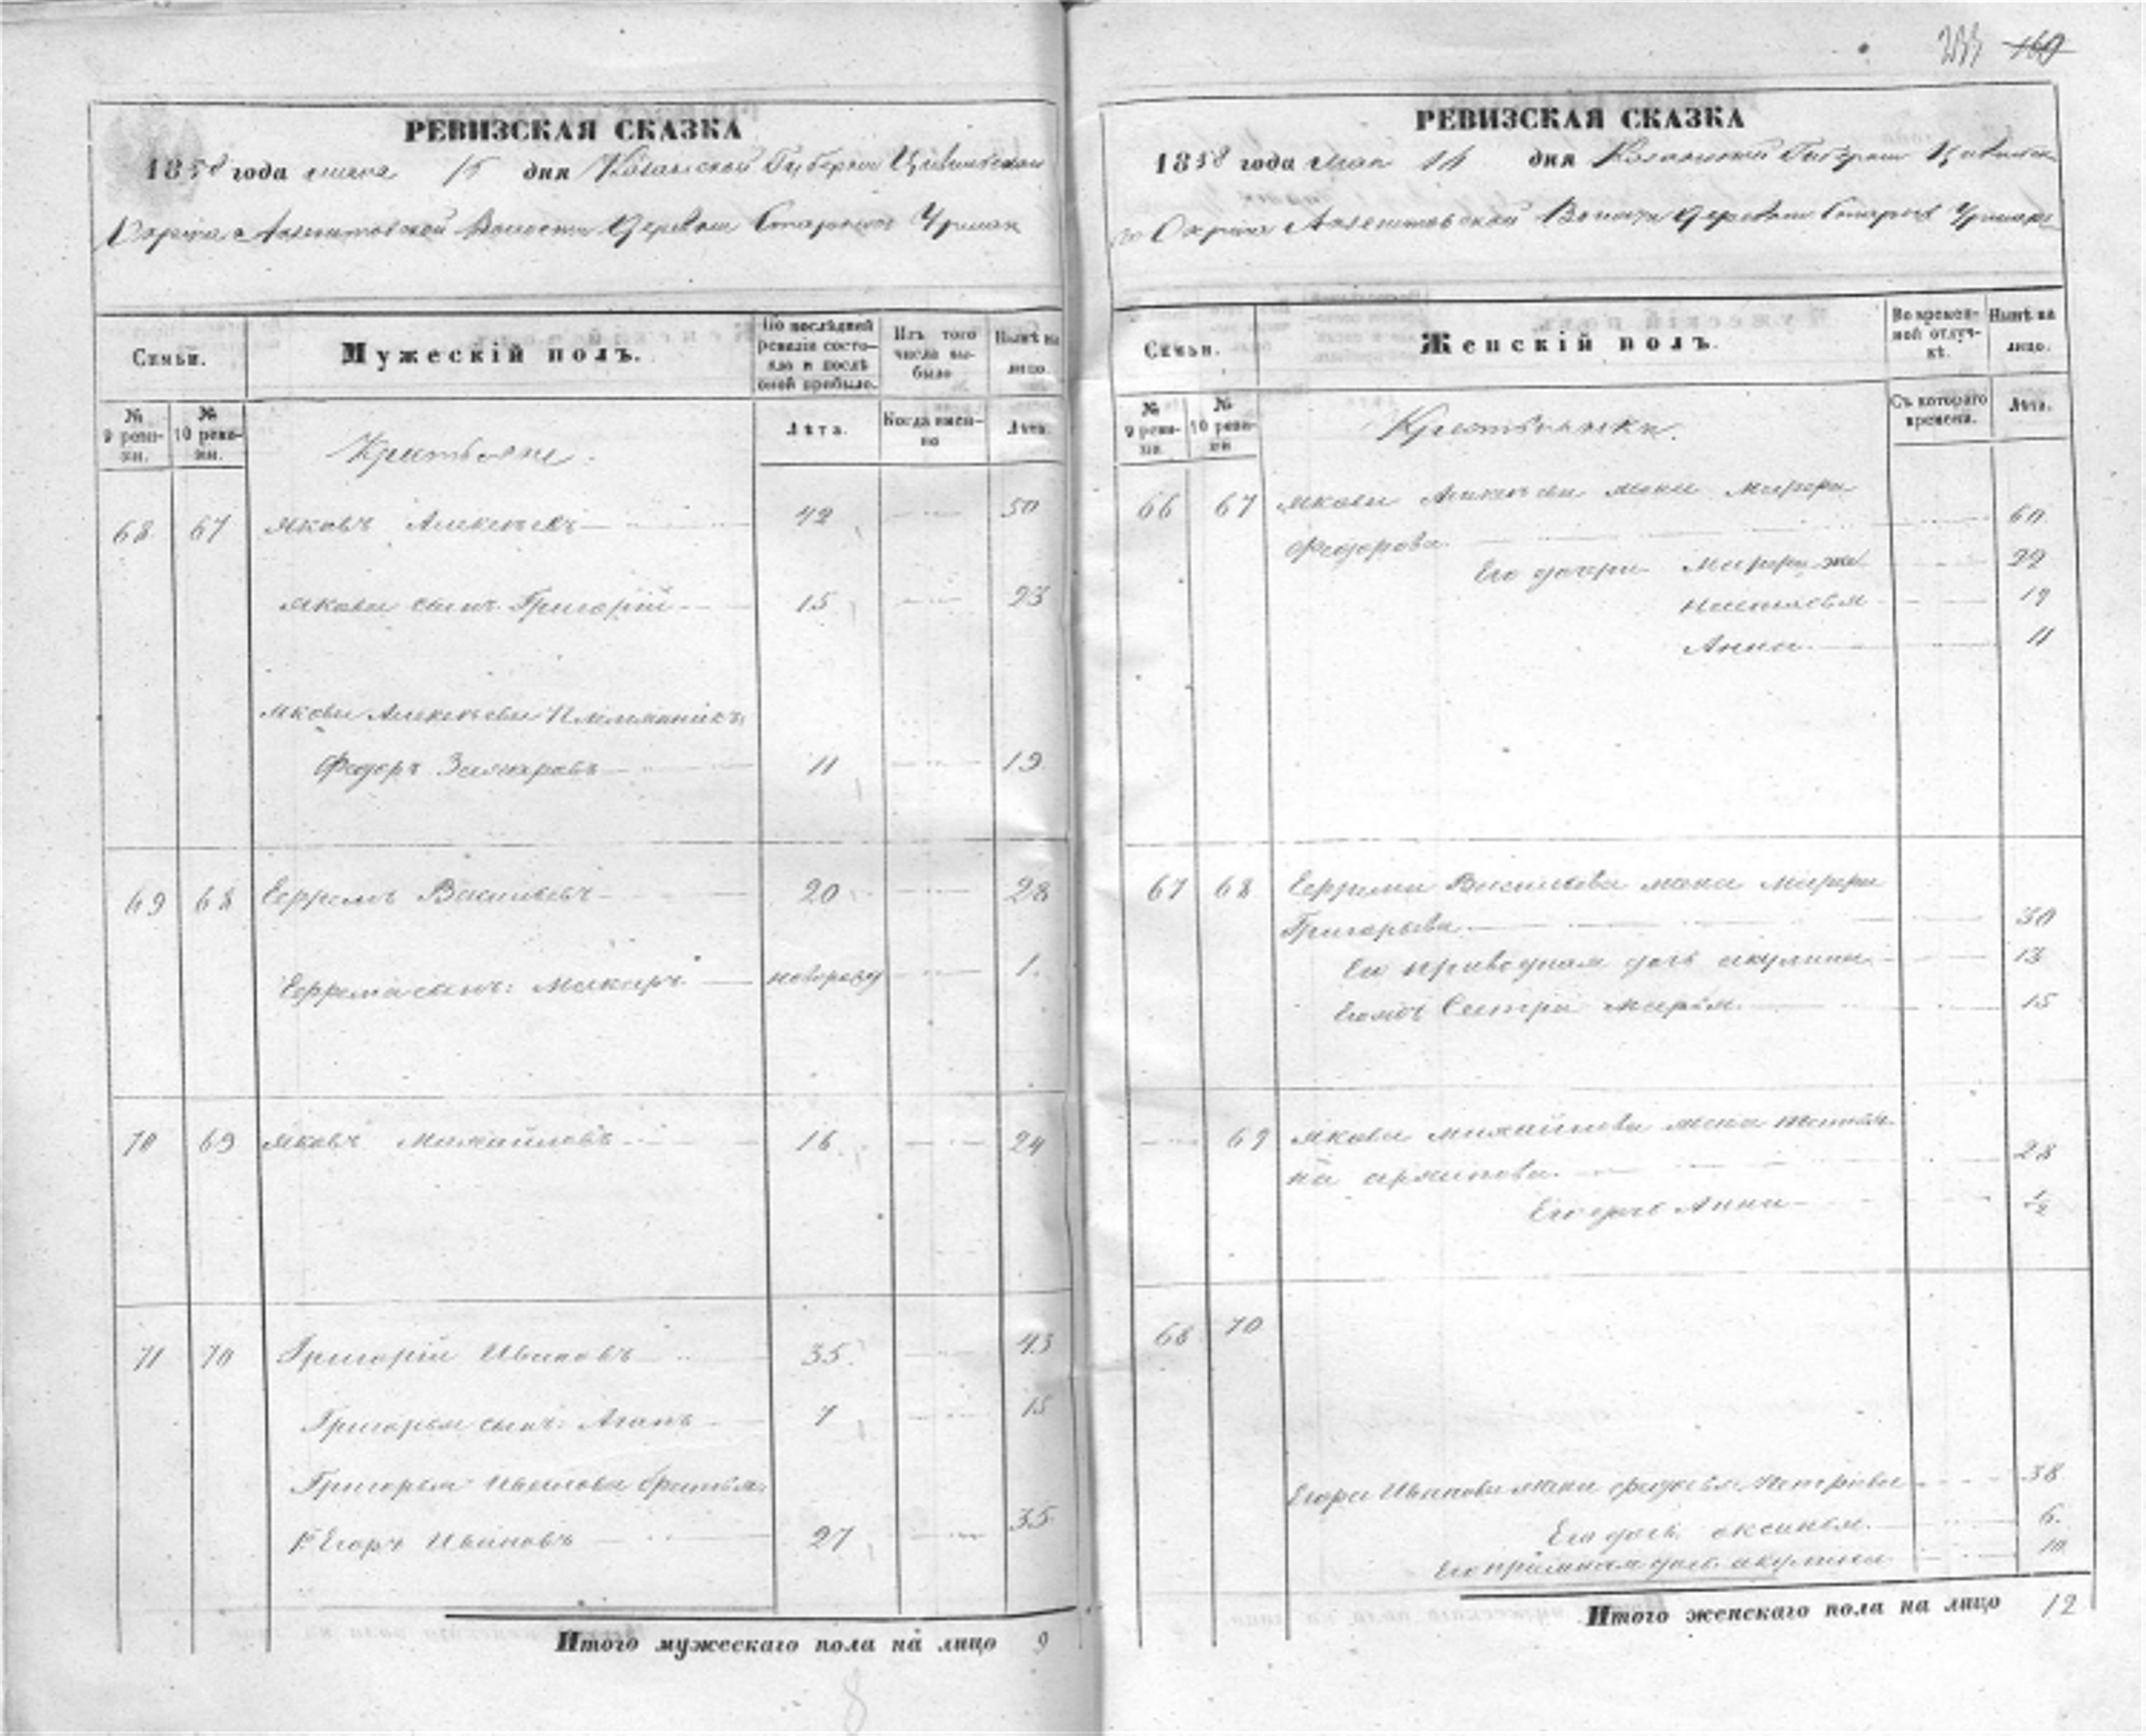 233 160
РЕВИЗСКАЯ СКАЗКА
1858 года мая 15 дня Казанской Губернии Цивильскаго
Округа Аклычевской Волости Деревни Старыхъ Урмаръ
Семьи.
Мужескій полъ.
По послѣдней ревизіи состояло и послѣ оной прибыло.
Изъ того числа выбыло
Нынѣ на лицо.
№ 9 ревизіи.
№ 10 ревизіи.
Лѣта.
Когда именно
Лѣта.
Крестьяне.
68 67 Яковъ Алексѣевъ 42 50
Якова сынъ Григорій 15 23
Якова Алексѣева Племянникъ
Федоръ Захаровъ 11 19
69 68 Ефремъ Васильевъ 20 28
Ефрема сынъ: Макаръ новорожд 1
70 69 Яковъ Михайловъ 16 24
71 70 Григорій Ивановъ 35 43
Григорья сынъ: Агапъ 7 15
Григорья Иванова братья
1й Егоръ Ивановъ 27 35
Итого мужескаго пола на лицо 9
8
РЕВИЗСКАЯ СКАЗКА
1858 года Мая 15 дня Казанской Губернии
Округа Волости Деревни Старыхъ Урмаръ
Семьи.
Женскій полъ.
Во временной отлучкѣ.
Нынѣ на лицо.
№ 9 ревизіи
№ 10 ревизіи
Съ котораго времени.
Лѣта.
Крестьянки.
66 67 Якова Алексѣева жена Марфа
Федорова 60
Его дочери Марфа же 22
Настасья 19
Анна 11
67 68 Ефрема Васильева жена Марфа
Григорьева 30
Ея приводная дочь Акулина 13
Егожъ Сестра Марья 15
69 Якова Михайлова жена Татья
на Архипова 28
Его дочь Анна 1/2
68 70
Егора Иванова жена Федосья Петрова 38
Его дочь Аксинья 6
Его пріемная дочь Акулина 10
Итого женскаго пола на лицо 12